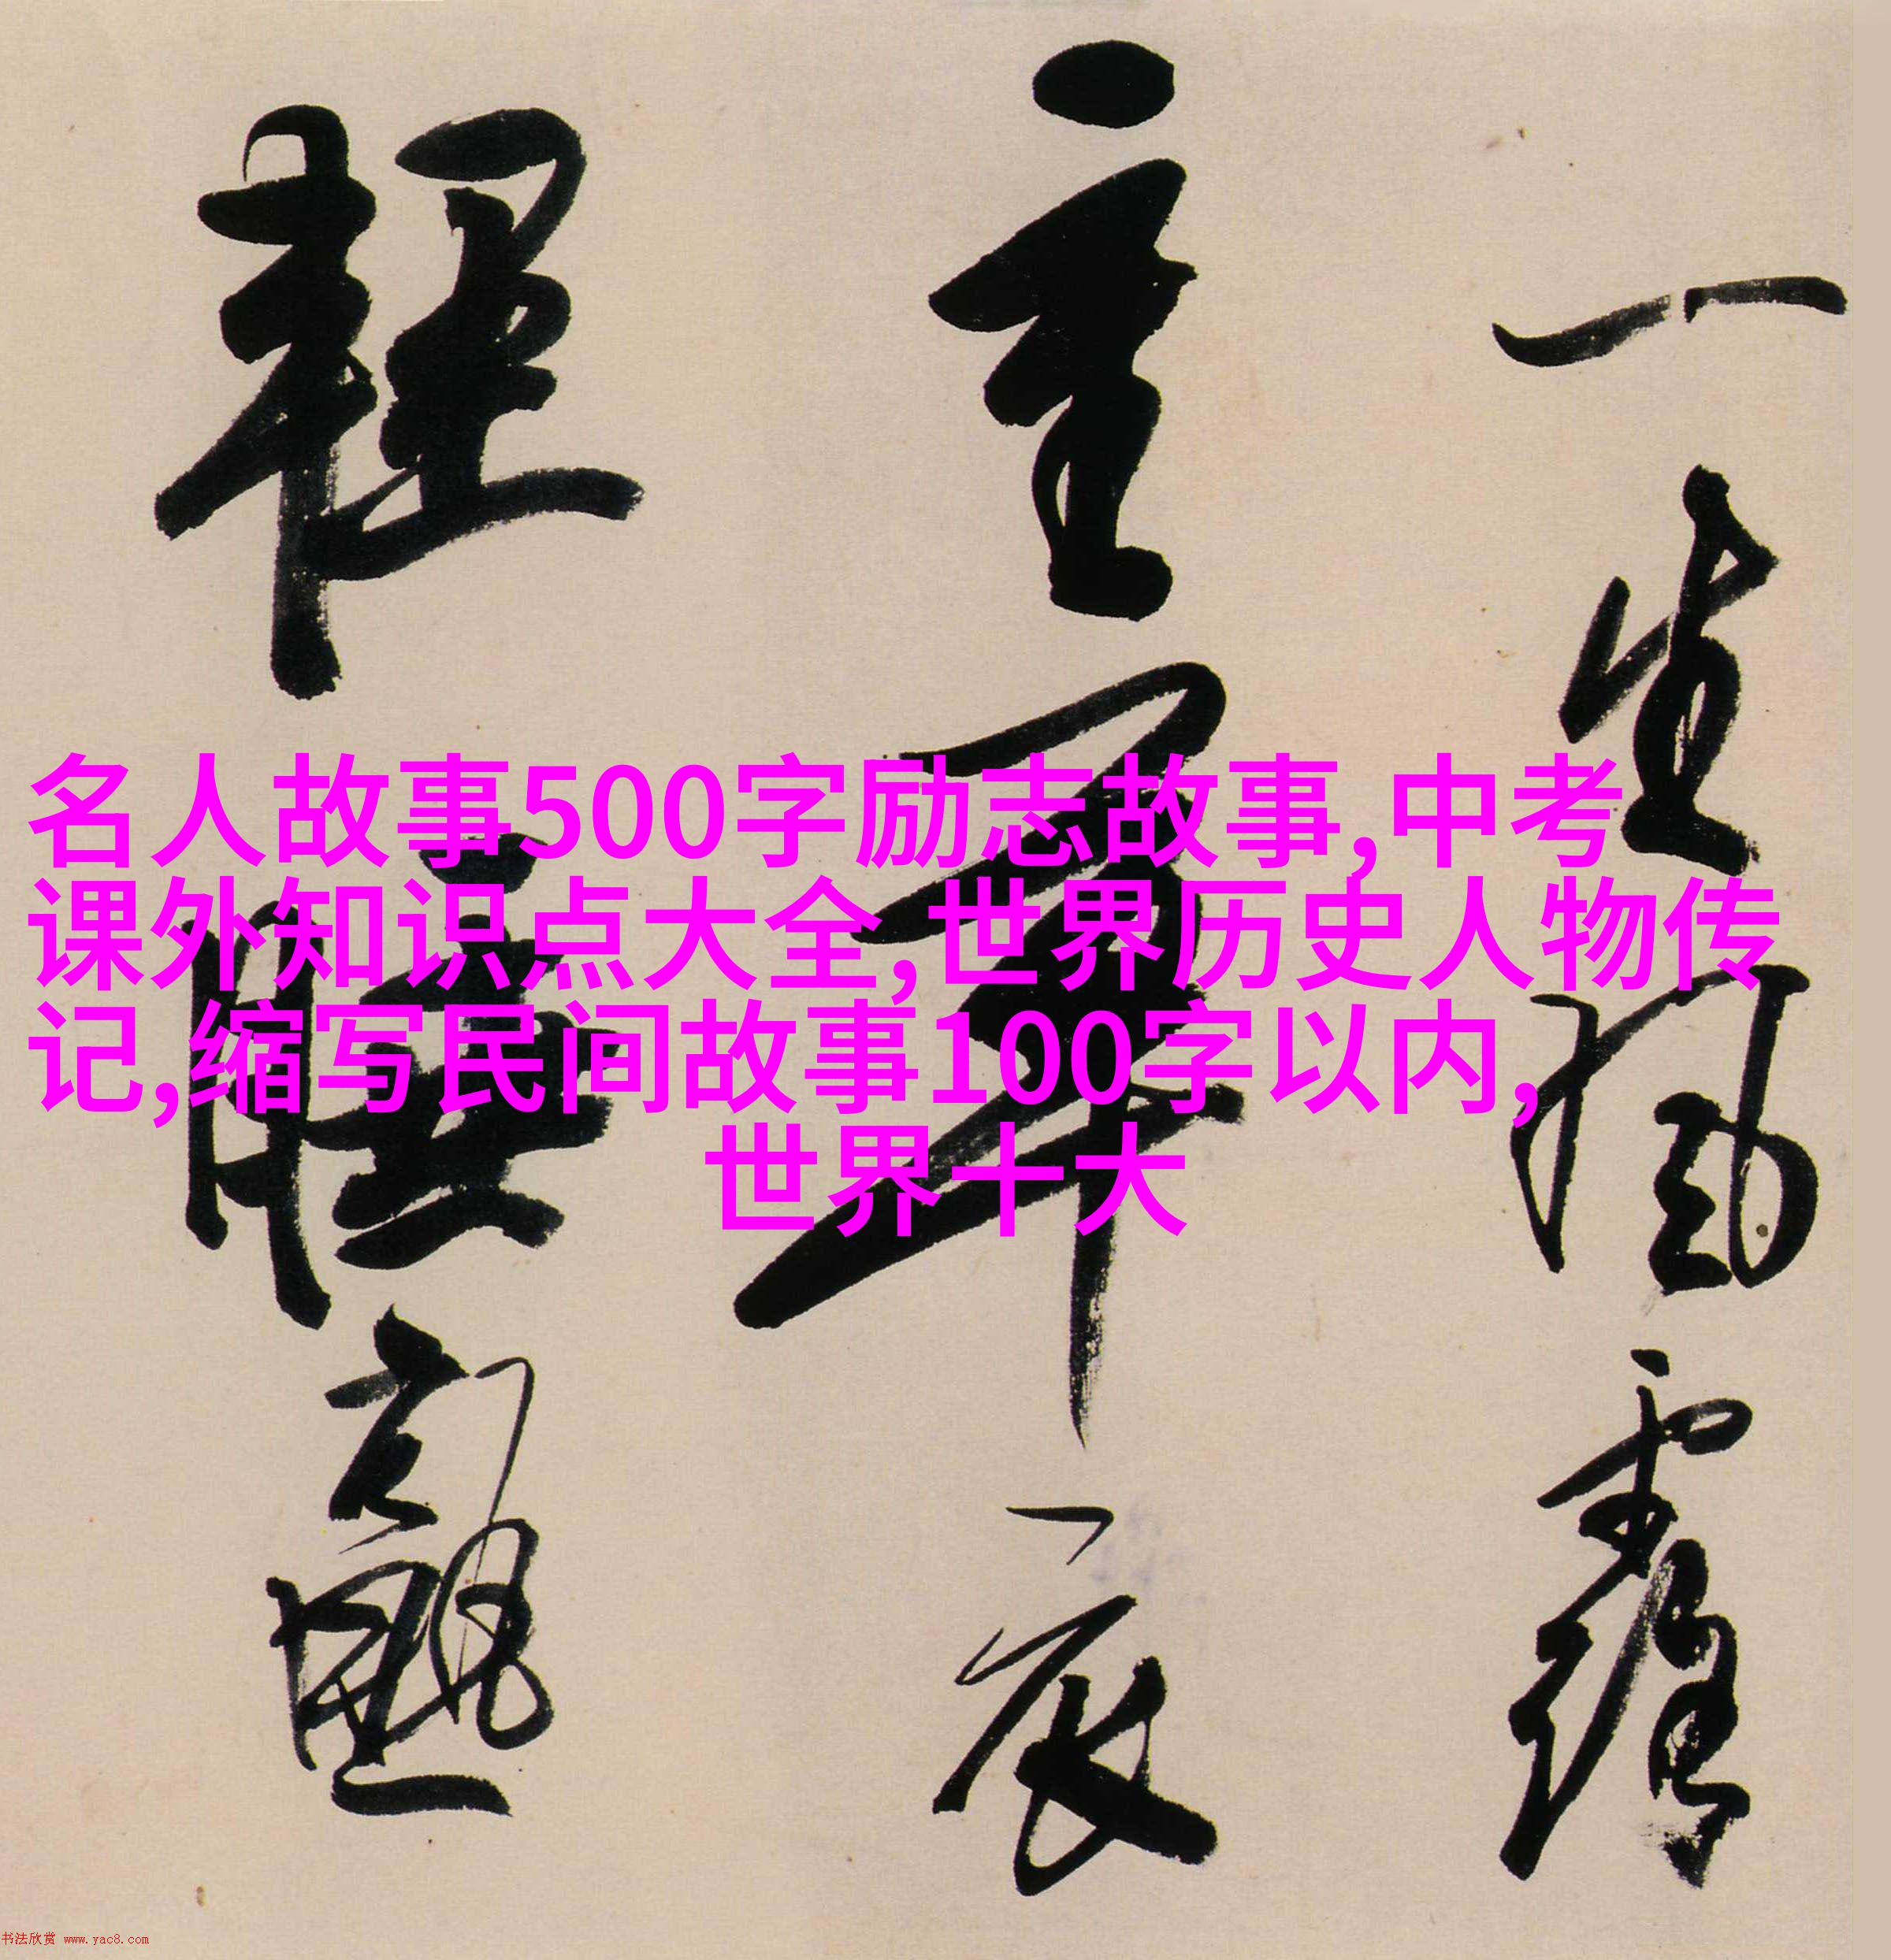 一生風露
主華一展
輕睡熟
名人故事500字励志故事,中考
课外知识点大全,世界历史人物传
记,缩写民间故事100字以内,
世界十大
书法欣赏 www.yac8.com